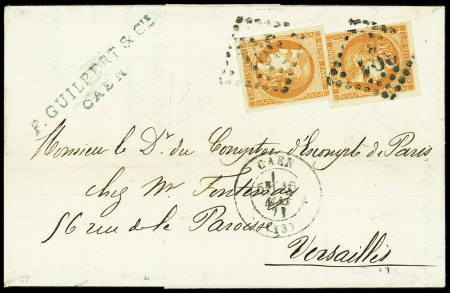 F. GUILBERT & Cie
CAEN
Monsieur le Dr. du Comptoir d'Escompte de Paris
chez Mr Fontenay
CAEN
71
(13)
56 rue de la Paroisse
Versailles